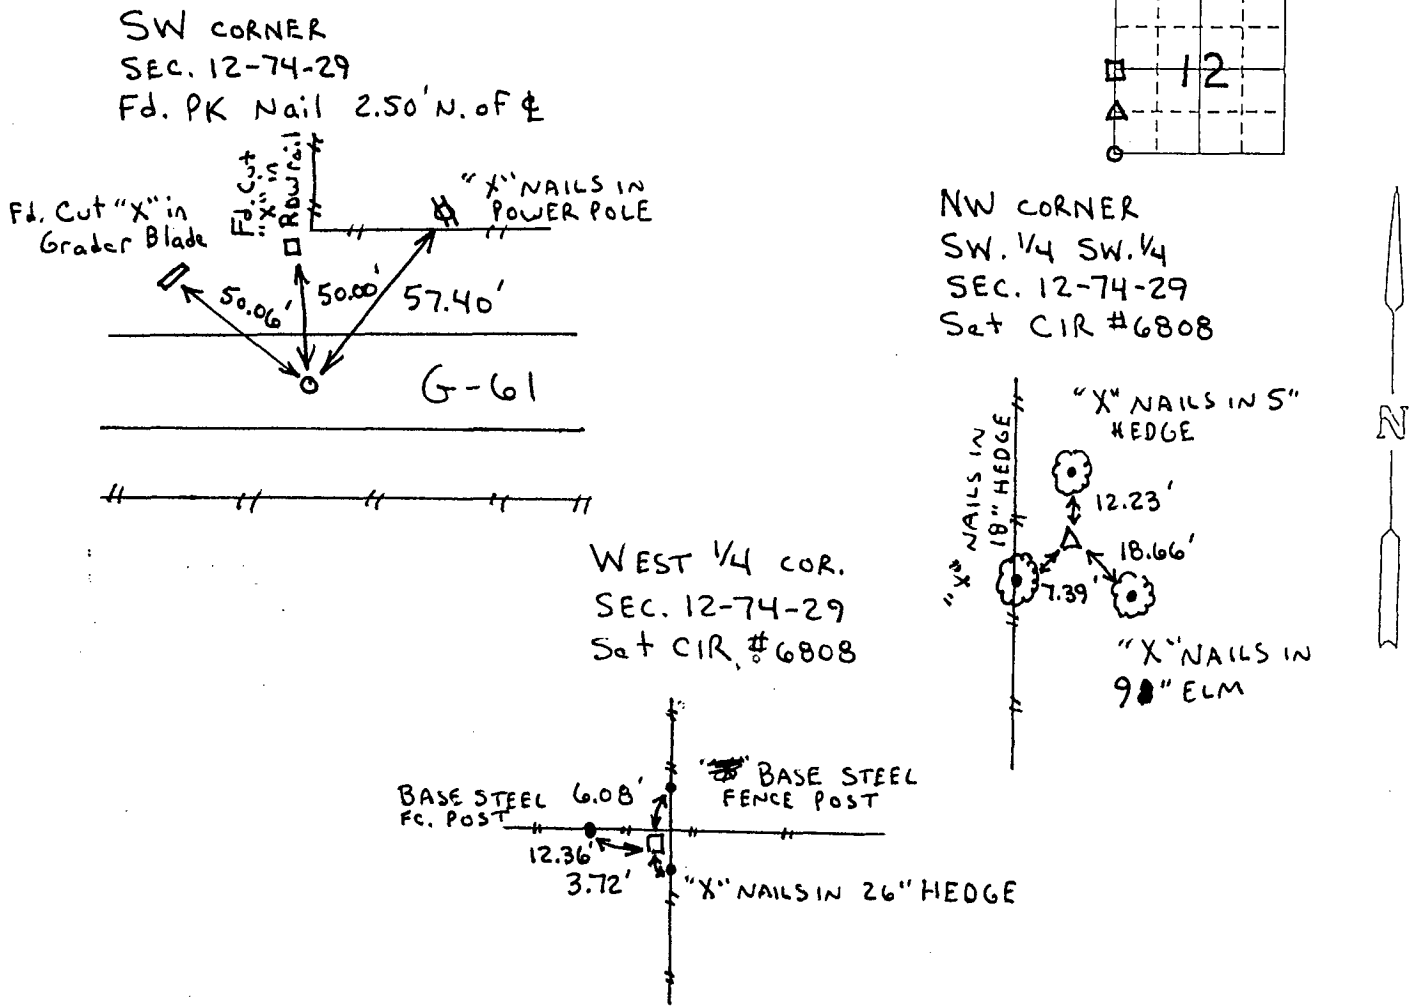 SW CORNER
SEC. 12-74-29
Fd. PK Nail 2.50' N. of ℄
Fd. Cut
"X" in
ROW rail
"X" NAILS IN
POWER POLE
Fd. Cut "X" in
Grader Blade
50.06'
50.00'
57.40'
G-61
12
NW CORNER
SW. 1/4 SW. 1/4
SEC. 12-74-29
Set CIR #6808
N
"X" NAILS IN 5"
HEDGE
"X" NAILS IN
18" HEDGE
12.23'
18.66'
7.39'
"X" NAILS IN
9" ELM
WEST 1/4 COR.
SEC. 12-74-29
Set CIR. #6808
BASE STEEL
FENCE POST
BASE STEEL
FC. POST
6.08'
12.36'
3.72'
"X" NAILS IN 26" HEDGE